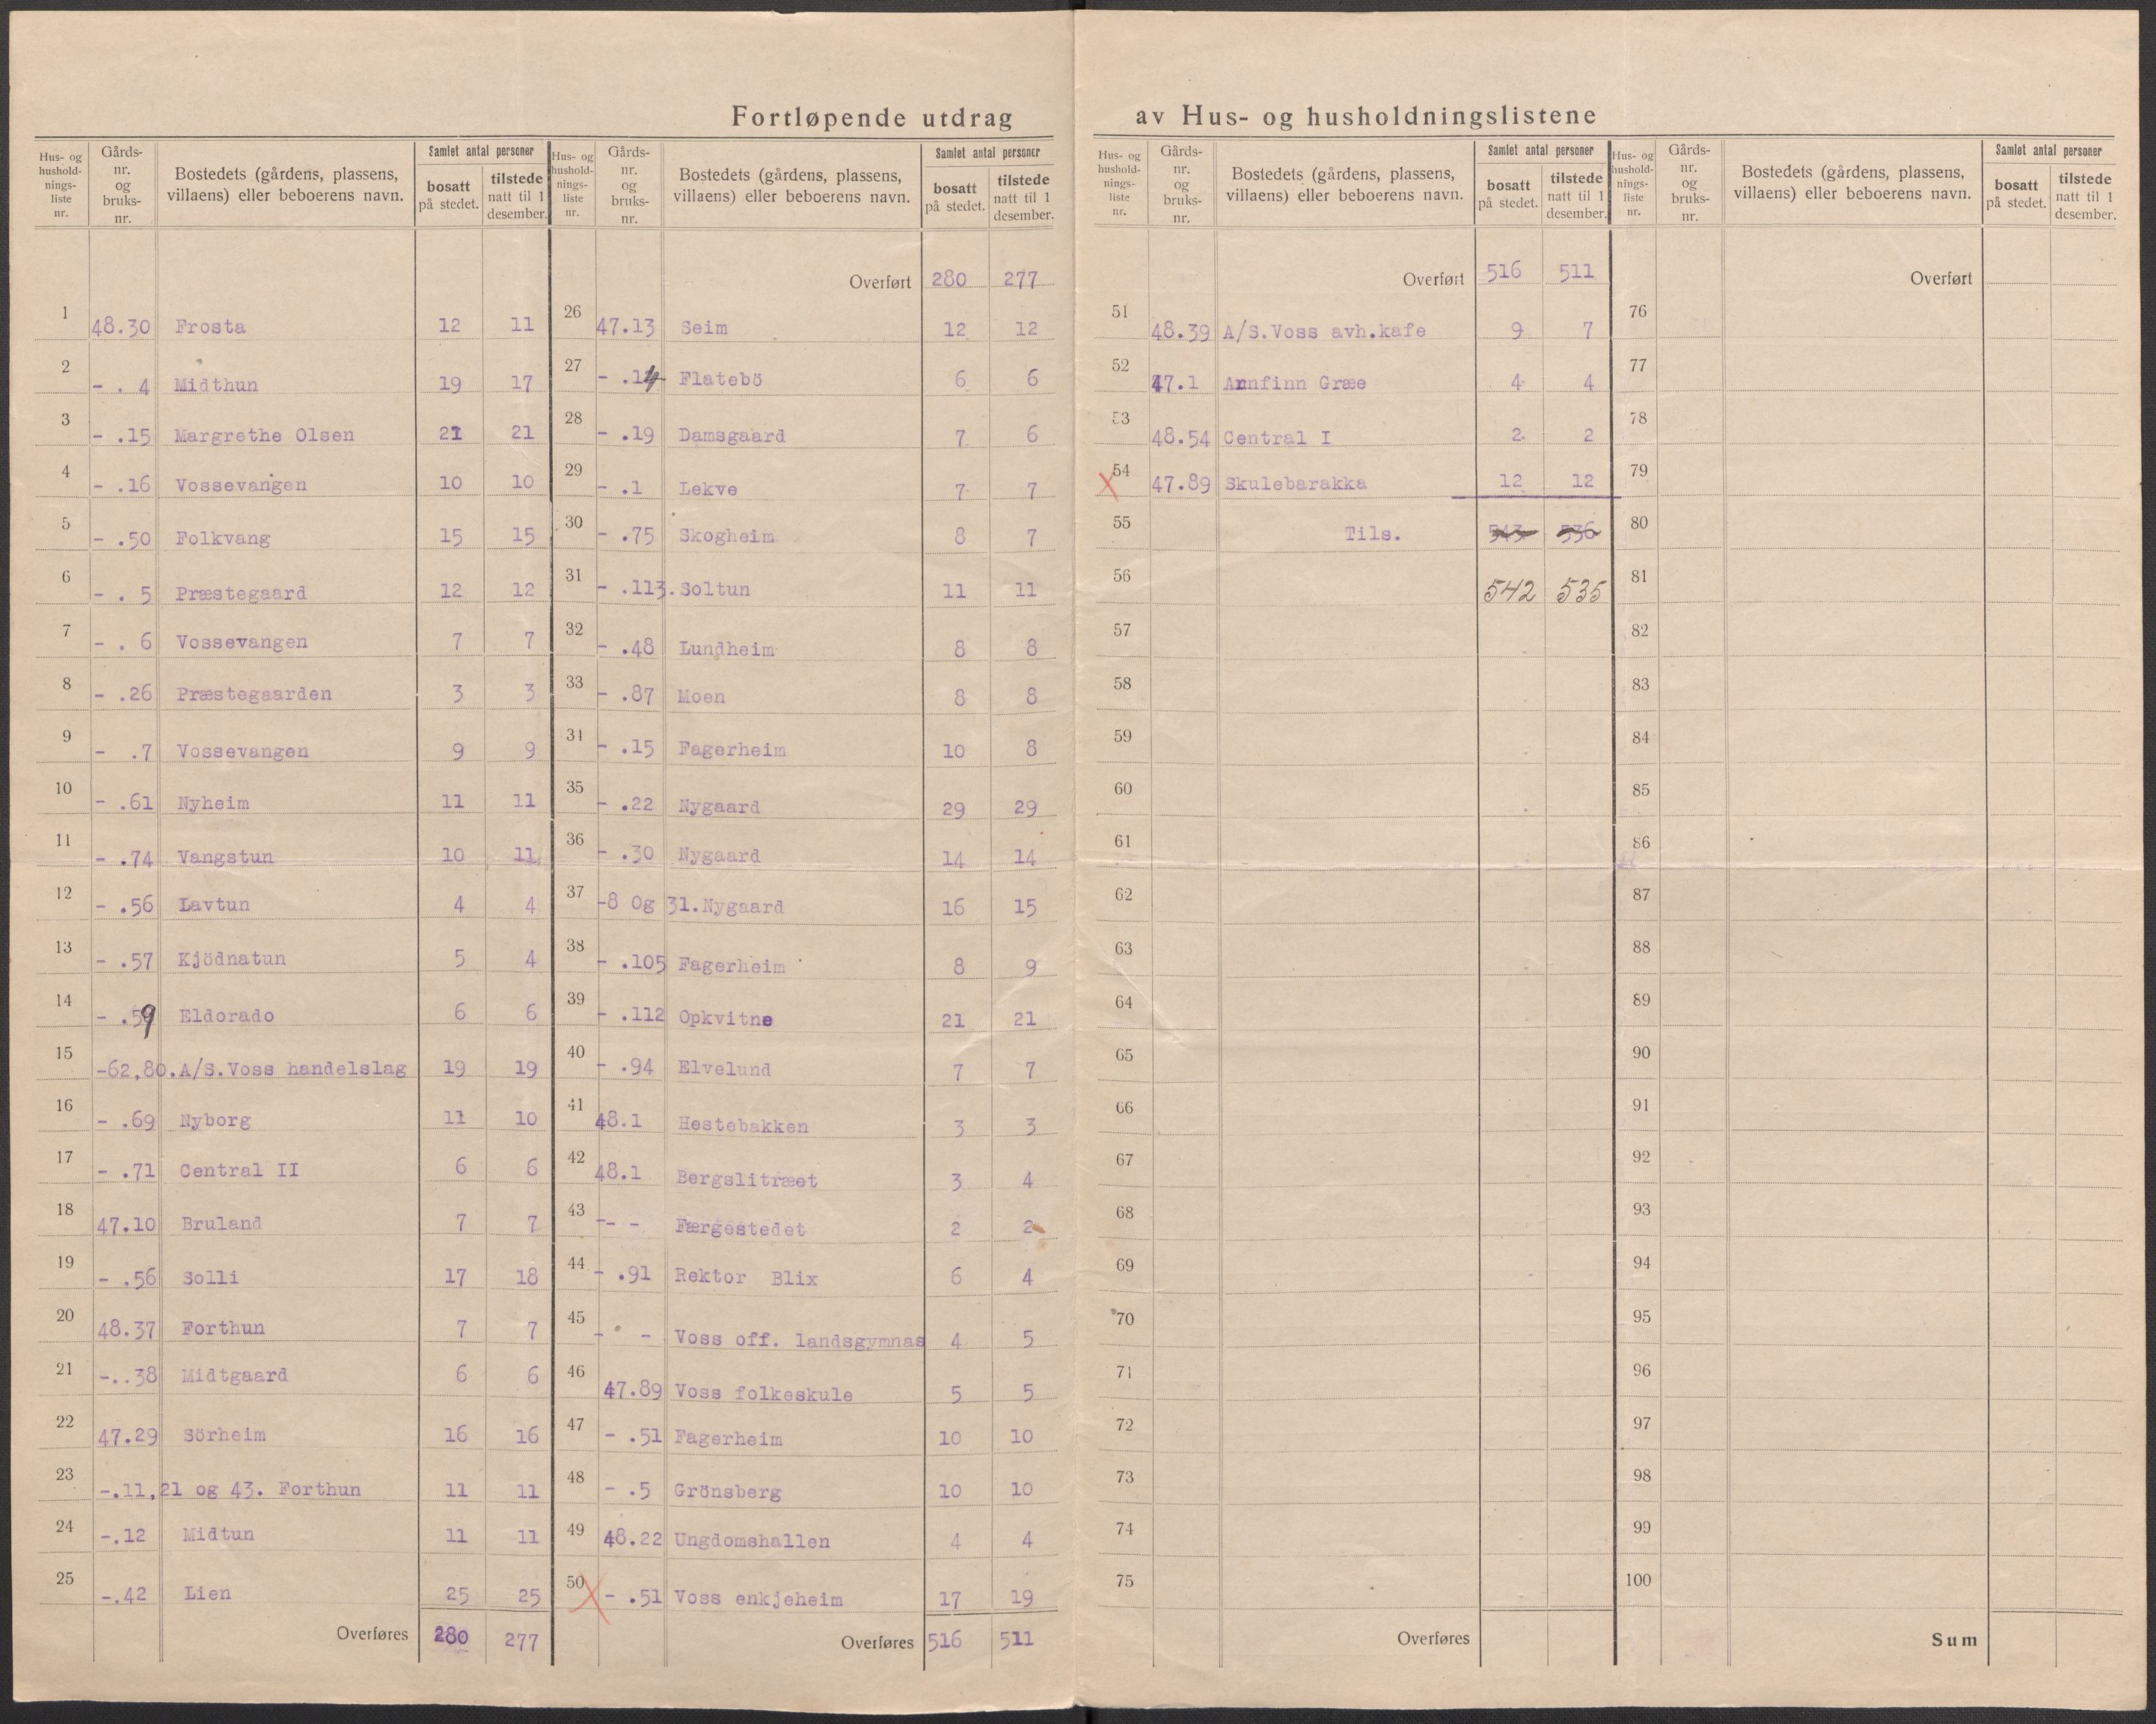 Fortløpende utdrag av Hus- og husholdningslistene
Hus- og husholdnings- liste nr. | Gårds- nr. og bruks- nr. | Bostedets (gårdens, plassens, villaens) eller beboerens navn. | Samlet antal personer | bosatt på stedet. | tilstede natt til 1 desember.
1 48.30 Frosta 12 11
2 - . 4 Midthun 19 17
3 - .15 Margrethe Olsen 21 21
4 - .16 Vossevangen 10 10
5 - .50 Folkvang 15 15
6 - . 5 Præstegaard 12 12
7 - . 6 Vossevangen 7 7
8 - .26 Præstegaarden 3 3
9 - .7 Vossevangen 9 9
10 - .61 Nyheim 11 11
11 - .74 Vangstun 10 11
12 - .56 Lavtun 4 4
13 - .57 Kjödnatun 5 4
14 - .59 Eldorado 6 6
15 -62,80.A/S.Voss handelslag 19 19
16 - .69 Nyborg 11 10
17 - .71 Central II 6 6
18 47.10 Bruland 7 7
19 - .56 Solli 17 18
20 48.37 Forthun 7 7
21 -..38 Midtgaard 6 6
22 47.29 Sörheim 16 16
23 -.11,21 og 43. Forthun 11 11
24 -.12 Midtun 11 11
25 -.42 Lien 25 25
Overføres 280 277
Hus- og husholdnings- liste nr. | Gårds- nr. og bruks- nr. | Bostedets (gårdens, plassens, villaens) eller beboerens navn. | Samlet antal personer | bosatt på stedet. | tilstede natt til 1 desember.
Overført 280 277
26 47.13 Seim 12 12
27 - .14 Flatebö 6 6
28 - .19 Damsgaard 7 6
29 - .1 Lekve 7 7
30 - .75 Skogheim 8 7
31 - .113. Soltun 11 11
32 - .48 Lundheim 8 8
33 - .87 Moen 8 8
34 - .15 Fagerheim 10 8
35 - .22 Nygaard 29 29
36 - .30 Nygaard 14 14
37 -8 og 31.Nygaard 16 15
38 - .105 Fagerheim 8 9
39 - .112 Opkvitne 21 21
40 - .94 Elvelund 7 7
41 48.1 Hestebakken 3 3
42 48.1 Bergslitræet 3 4
43 -- - Færgestedet 2 2
44 - .91 Rektor Blix 6 4
45 - - Voss off. landsgymnas 4 5
46 47.89 Voss folkeskule 5 5
47 - .51 Fagerheim 10 10
48 - .5 Grönsberg 10 10
49 48.22 Ungdomshallen 4 4
50 - .51 Voss enkjeheim 17 19
Overføres 516 511
Hus- og husholdnings- liste nr. | Gårds- nr. og bruks- nr. | Bostedets (gårdens, plassens, villaens) eller beboerens navn. | Samlet antal personer | bosatt på stedet. | tilstede natt til 1 desember.
Overført 516 511
51 48.39 A/S.Voss avh.kafe 9 7
52 47.1 Arnfinn Græe 4 4
53 48.54 Central I 2 2
54 47.89 Skulebarakka 12 12
55 Tils. 543 536
56 542 535
57
58
59
60
61
62
63
64
65
66
67
68
69
70
71
72
73
74
75
Overføres
Hus- og husholdnings- liste nr. | Gårds- nr. og bruks- nr. | Bostedets (gårdens, plassens, villaens) eller beboerens navn. | Samlet antal personer | bosatt på stedet. | tilstede natt til 1 desember.
Overført
76
77
78
79
80
81
82
83
84
85
86
87
88
89
90
91
92
93
94
95
96
97
98
99
100
Sum